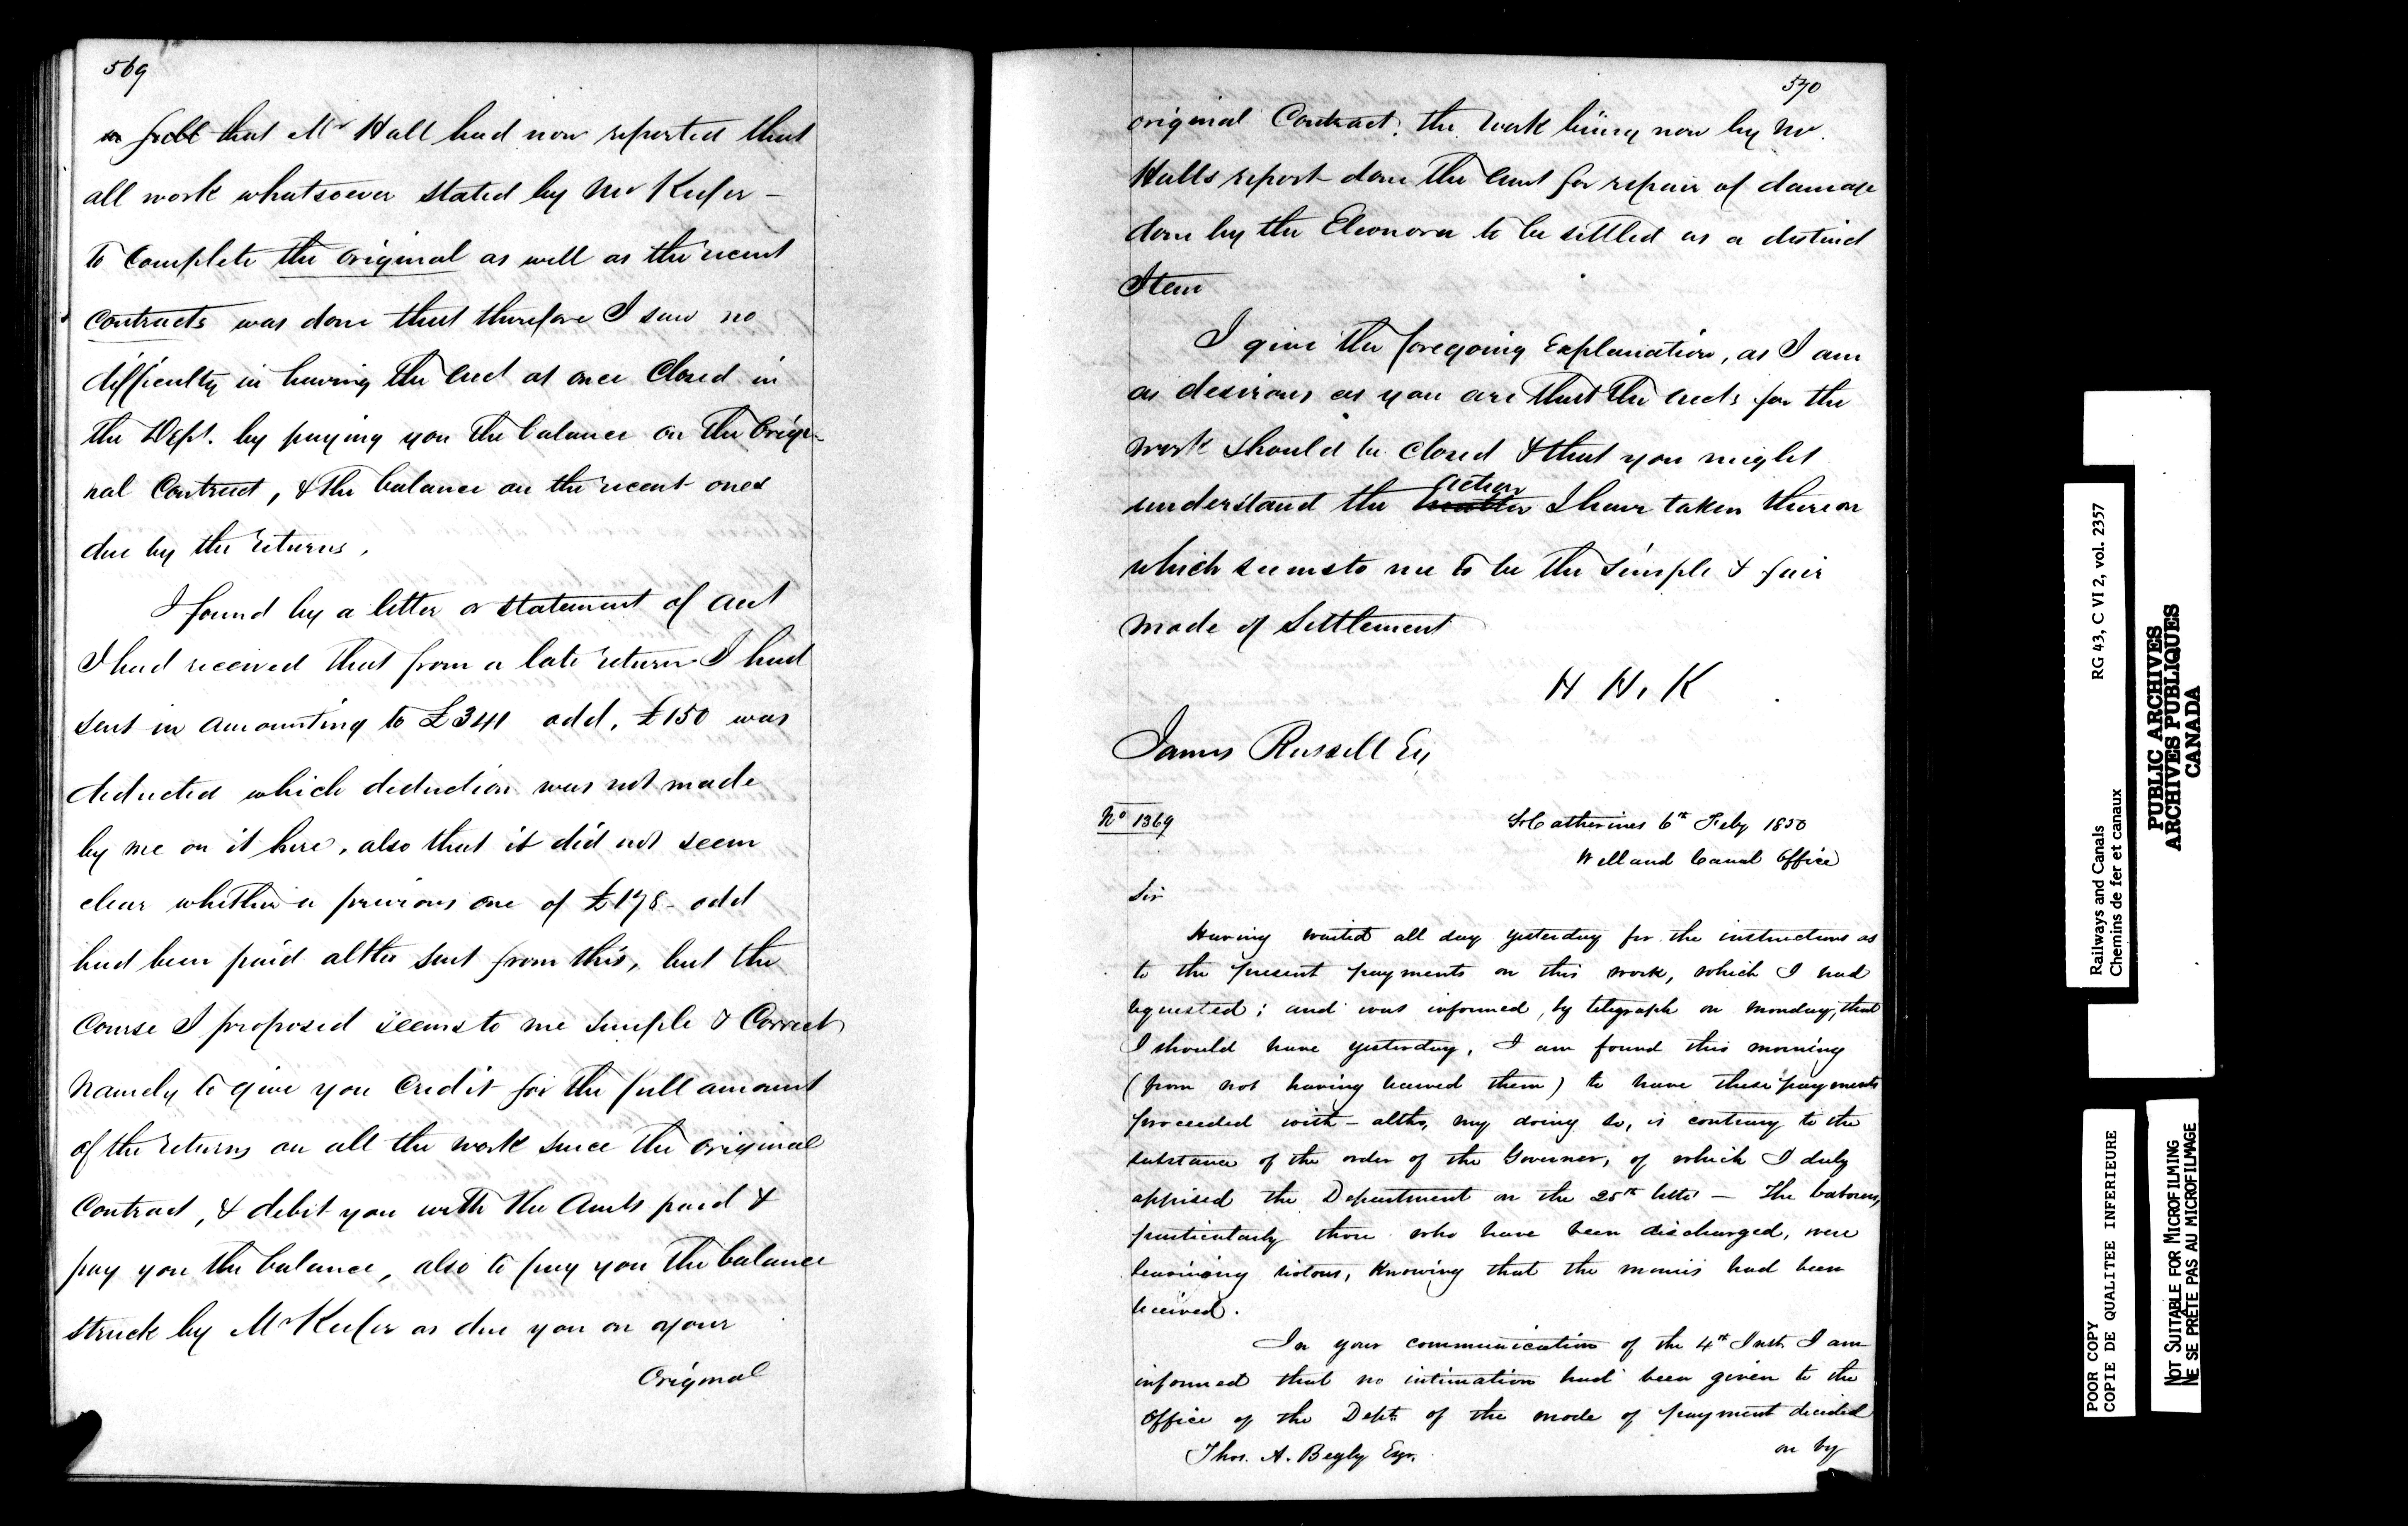 569
in full that Mr Hall had now reported that
all work whatsoever stated by Mr Keefer -
to complete the original as well as the recent
contracts was done that therefore I saw no
difficulty in having the acct at once Closed in
the Dept. by paying you the balance on the Origi-
nal Contract, & the balance on the recent ones
due by the returns.
I found by a letter or statement of acct
I had received that from a late return I had
sent in amounting to £341 odd, £150 was
deducted which deduction was not made
by me on it here, also that it did not seem
clear whether a previous one of £178- odd
had been paid altho sent from this, but the
Course I proposed seems to me simple & Correct
Namely to give you Credit for the full amount
of the returns on all the work since the original
Contract, & debit you with the Amts paid &
pay you the balance, also to pay you the balance
struck by Mr Keefer as due you on your
Original
570
original Contract. the work being now by Mr.
Halls report done the amt for repair of damage
done by the Eleonora to be settled as a distinct
Item
I give the foregoing Explanation, as I am
as desirous as you are that the accts for the
work should be closed & that you might
Action
understand the matter I have taken thereon
which seems to me to be the simple & fair
mode of Settlement
H H. K
James Russell Esq
No 1369
St Catherines 6th Feby 1850
Welland Canal Office
Sir
Having waited all day yesterday for the instructions as
to the present payments on this work, which I had
requested; and was informed, by telegraph on Monday, that
I should have yesterday, I am found this morning
(from not having received them) to have these payments
proceeded with - altho, my doing so, is contrary to the
substance of the order of the Governor, of which I duly
apprised the Department on the 25th - The laborers,
particularly those who have been discharged, were
becoming riotous, Knowing that the monies had been
received.
In your communication of the 4th Inst. I am
informed that no intimation had been given to the
Office of the Dept. of the mode of payment decided
on by
Thos. A. Begly Esqr.
Railways and Canals RG 43, C VI 2, vol. 2357
Chemins de fer et canaux
PUBLIC ARCHIVES
ARCHIVES PUBLIQUES
CANADA
POOR COPY
COPIE DE QUALITEE INFERIEURE
NOT SUITABLE FOR MICROFILMING
NE SE PRÊTE PAS AU MICROFILMAGE